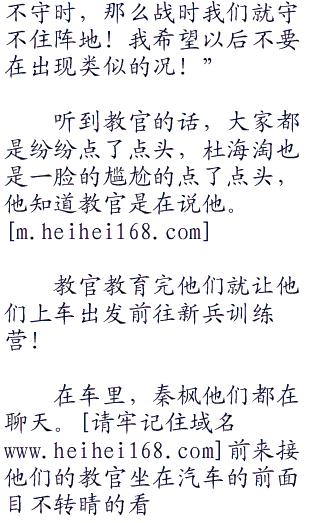 不守时，那么战时我们就守
不住阵地！我希望以后不要
在出现类似的况！”
听到教官的话，大家都
是纷纷点了点头，杜海淘也
是一脸的尴尬的点了点头，
他知道教官是在说他。
[m.heihei168.com]
教官教育完他们就让他
们上车出发前往新兵训练
营！
在车里，秦枫他们都在
聊天。[请牢记住域名
www.heihei168.com]前来接
他们的教官坐在汽车的前面
目不转睛的看